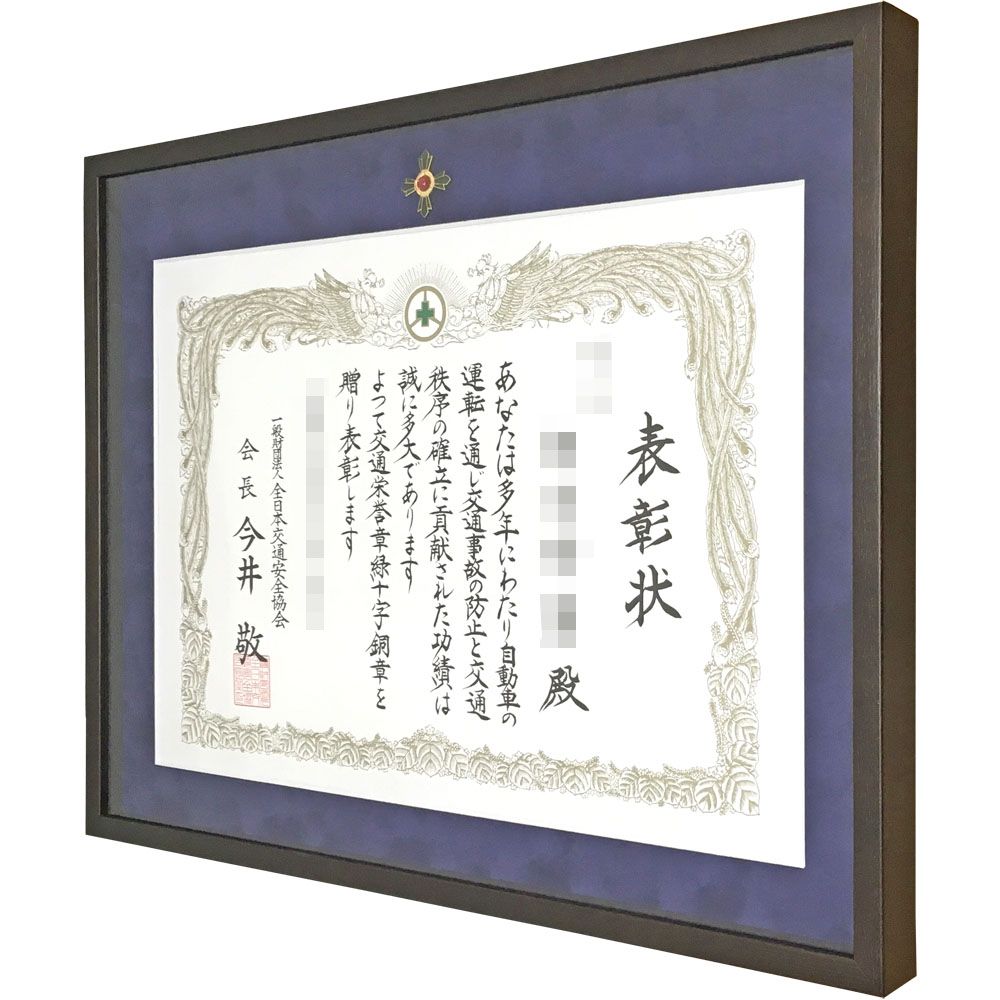 表彰状
殿
あなたは多年にわたり自動車の
運転を通じ交通事故の防止と交通
秩序の確立に貢献された功績は
誠に多大であります
よつて交通栄誉章緑十字銅章を
贈り表彰します
一般財団法人 全日本交通安全協会
会長 今井 敬